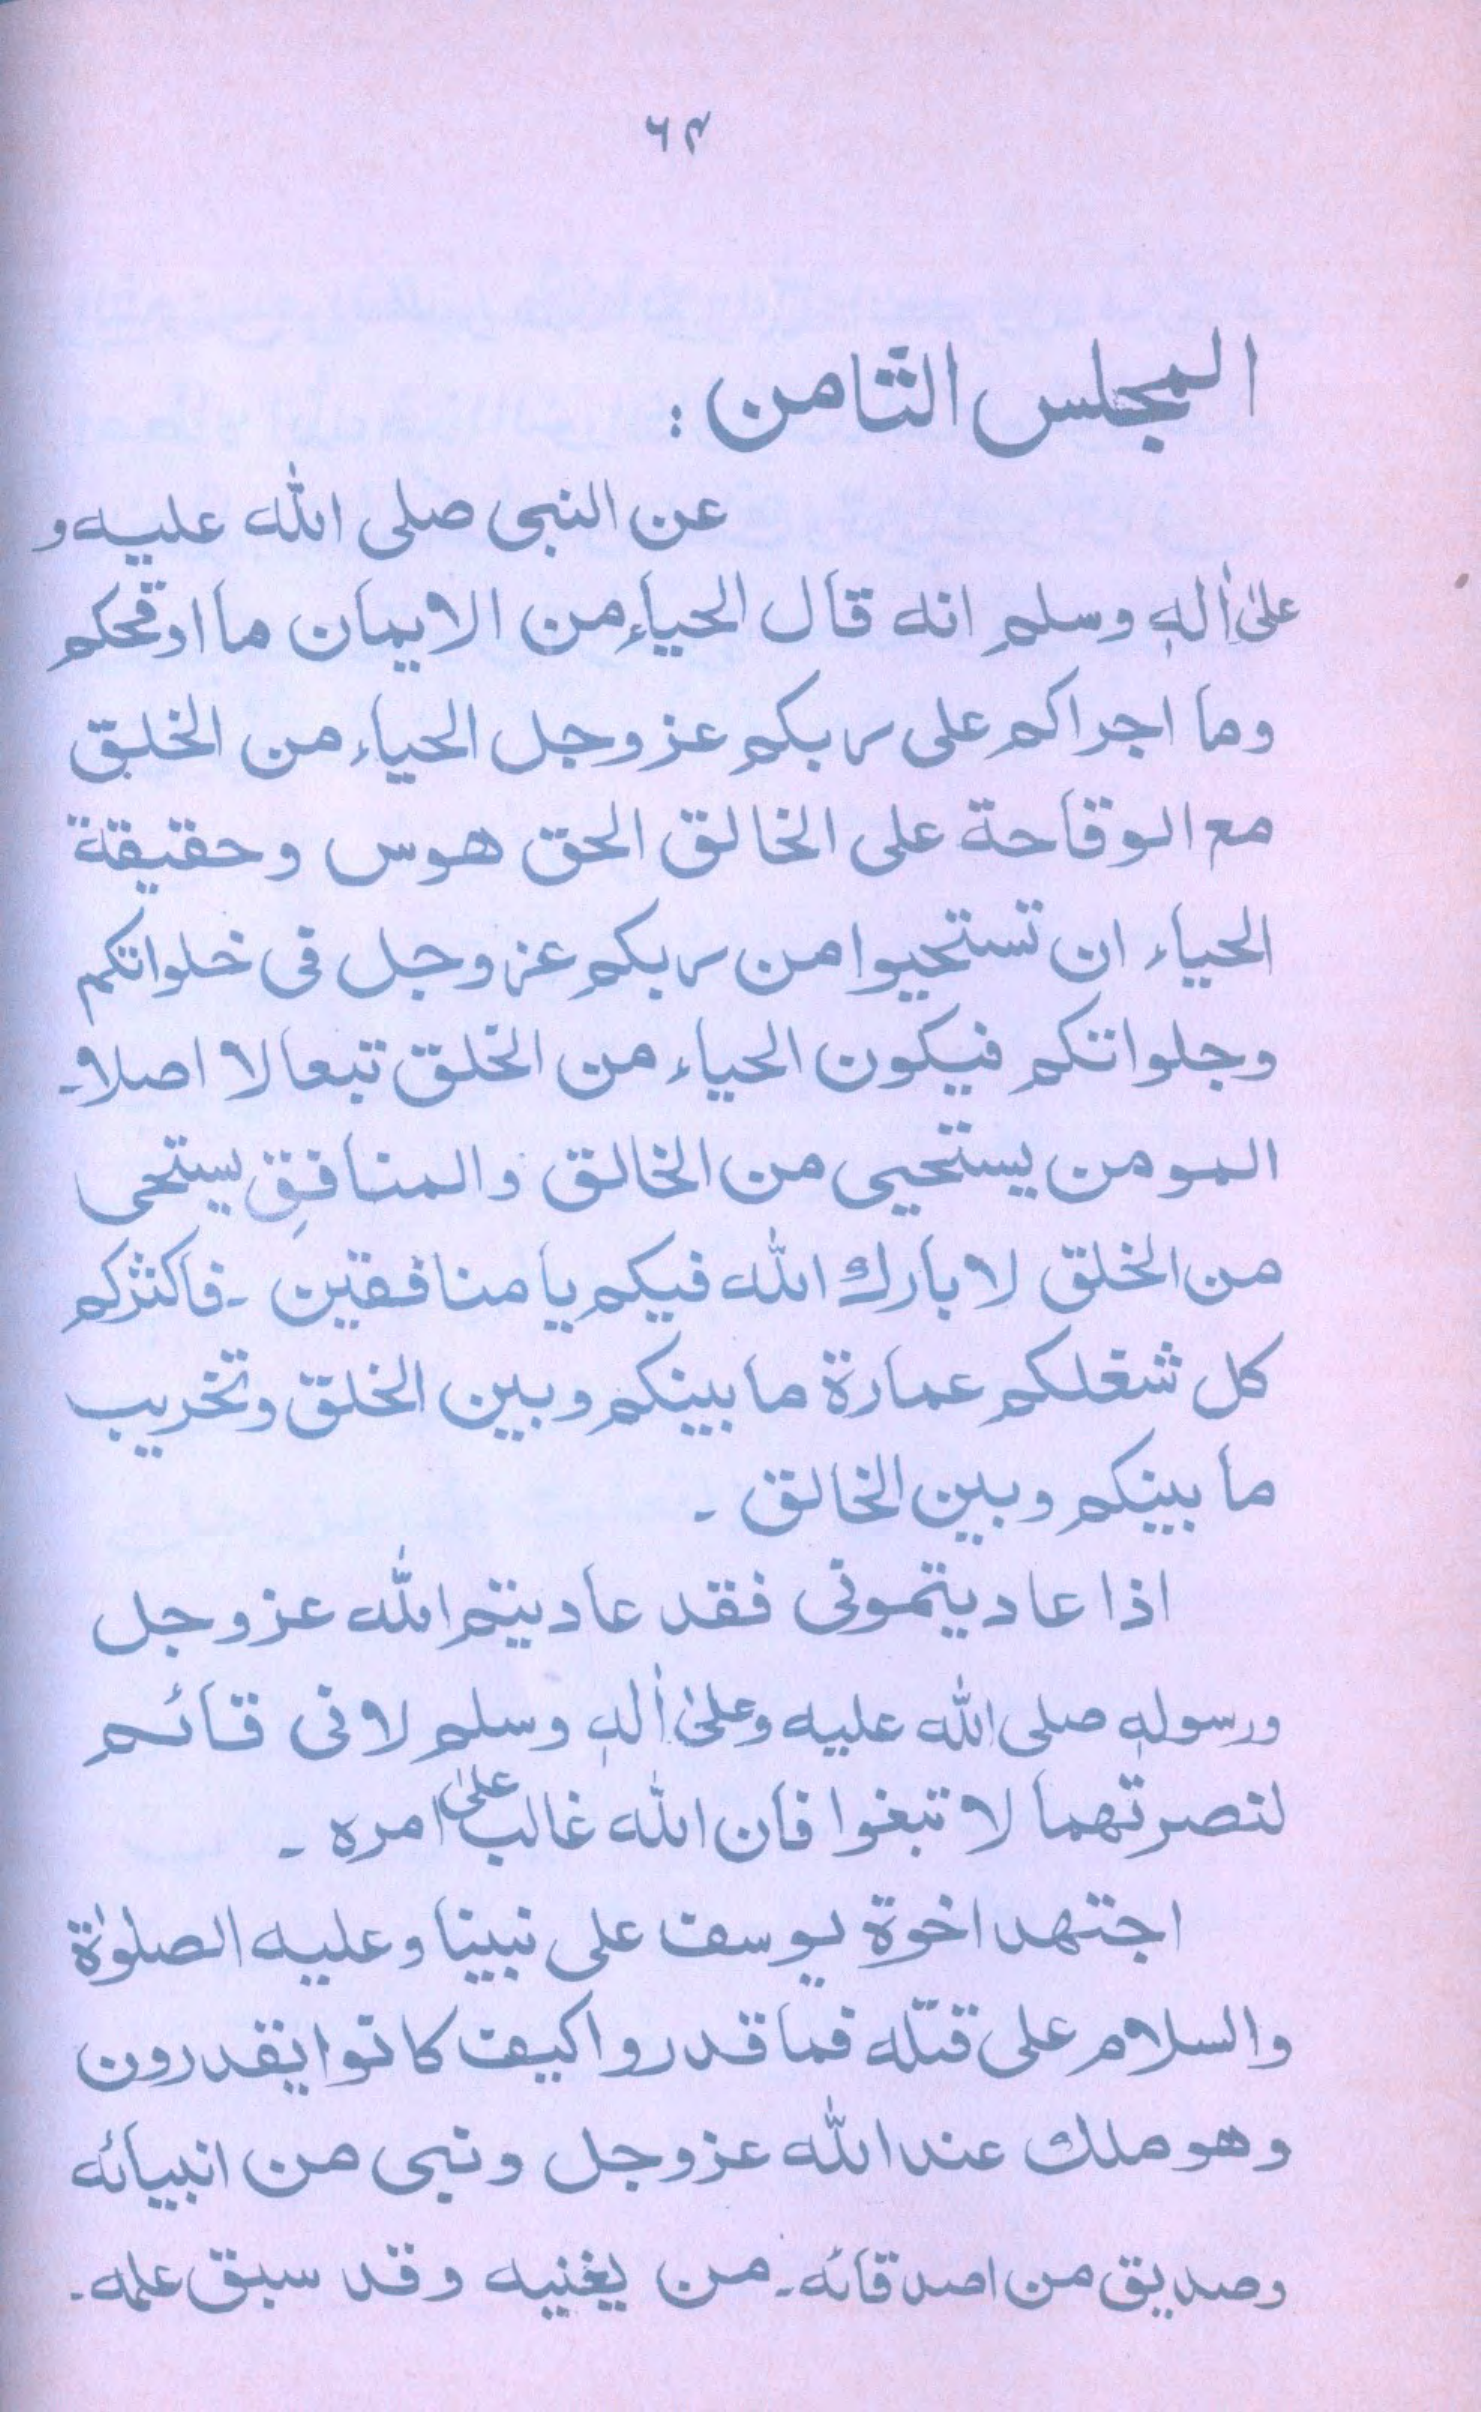 ۶۴
المجلس الثامن :
عن النبی صلی الله علیه و
علیٰ اٰلهٖ وسلم انه قال الحیاء من الایمان ما اوقحکم
وما اجراکم علی ربکم عز وجل الحیاء من الخلق
مع الوقاحة علی الخالق الحق هوس وحقیقة
الحیاء ان تستحیوا من ربکم عز وجل فی خلواتکم
وجلواتکم فیکون الحیاء من الخلق تبعا لا اصلا۔
المومن یستحیی من الخالق والمنافِق یستحی
من الخلق لا بارك الله فیکم یا منافقین ۔ فاکثرکم
کل شغلکم عمارة ما بینکم وبین الخلق وتخریب
ما بینکم وبین الخالق ۔
اذا عادیتمونی فقد عادیتم الله عز وجل
ورسولهٖ صلی الله علیه وعلیٰ اٰلهٖ وسلم لانی قائم
لنصرتهما لا تبغوا فان الله غالب علیٰ امره ۔
اجتهد اخوة یوسف علی نبینا وعلیه الصلوٰة
والسلام علی قتله فما قدروا کیف کانوا یقدرون
وهو ملك عند الله عز وجل ونبی من انبیائه
وصدیق من اصدقائه۔ من یغنیه وقد سبق علمه۔